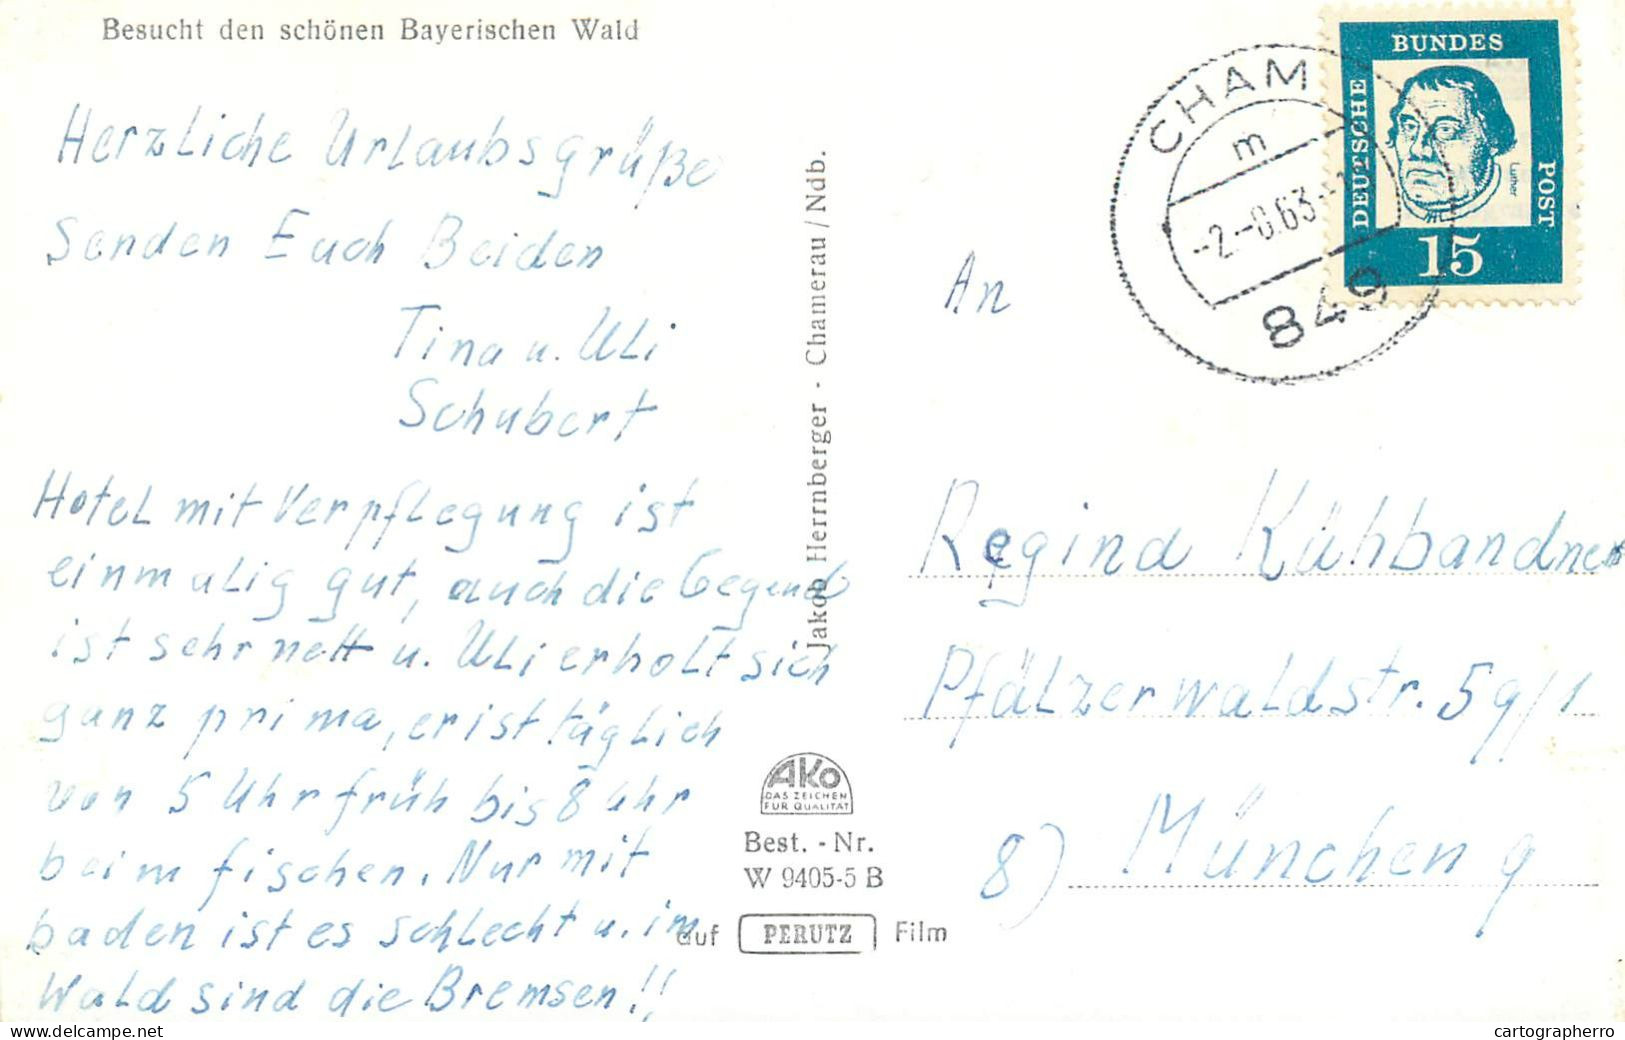 Besucht den schönen Bayerischen Wald
Herzliche Urlaubsgrüße
Senden Euch Beiden
Tina u. Uli
Schubert
Hotel mit Verpflegung ist
einmalig gut, auch die Gegend
ist sehr nett u. Uli erholt sich
ganz prima, er ist täglich
von 5 Uhr früh bis 8 Uhr
beim fischen. Nur mit
baden ist es schlecht u. im
Wald sind die Bremsen!!
Jakob Herrnberger - Chamerau/Ndb.
AKO
DAS ZEICHEN
FÜR QUALITÄT
Best.-Nr.
W 9405-5 B
auf PERUTZ Film
CHAM
m
849
DEUTSCHE
BUNDES
POST
Luther
15
An
Regina Kühbandner
Pfälzerwaldstr. 59/1
8) München 9
delcampe.net
cartographerro